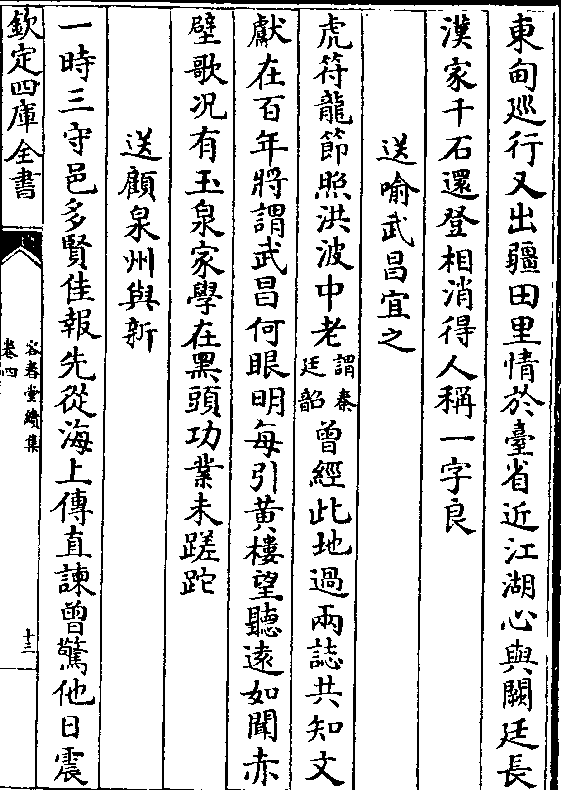 東甸巡行又出疆田里情於臺省近江湖心與闕廷長
漢家千石還登相消得人稱一字良
送喻武昌宜之
虎符龍節照洪波中老謂秦廷韶曾經此地過兩誌共知文
獻在百年將謂武昌何眼明每引黃樓望聽遠如聞赤
壁歌況有玉泉家學在黑頭功業未蹉跎
送顧泉州與新
一時三守邑多賢佳報先從海上傳直諫曾驚他日震
欽定四庫全書
容春堂續集
卷四
十三